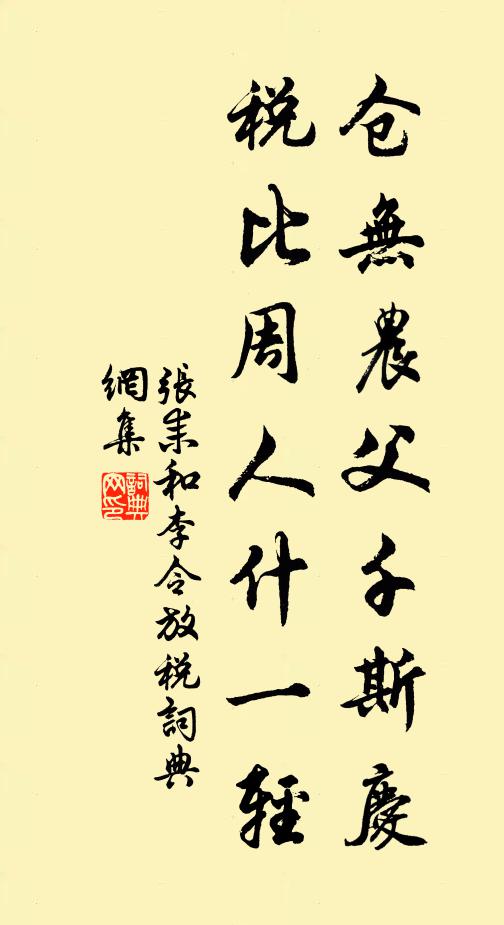 仓無農父千斯慶
税比周人什一輕
張耒和李令放税詞典
網集
詞典網印